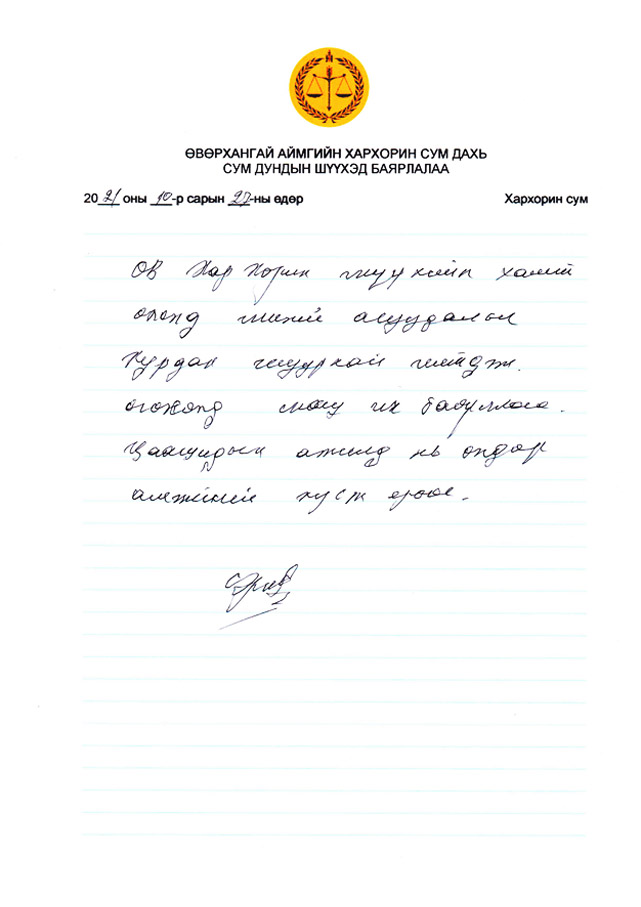 ӨВӨРХАНГАЙ АЙМГИЙН ХАРХОРИН СУМ ДАХЬ
СУМ ДУНДЫН ШҮҮХЭД БАЯРЛАЛАА
2021 оны 10-р сарын 27-ны өдөр Хархорин сум
Өв Хар Хорин шүүхийн
миний асуудалыг
Хурдан шуурхай шийдэж
өгсөнд маш их баярлалаа.
Цаашидын ажилд нь өндөр
амжилт хүсэж ерөөе.